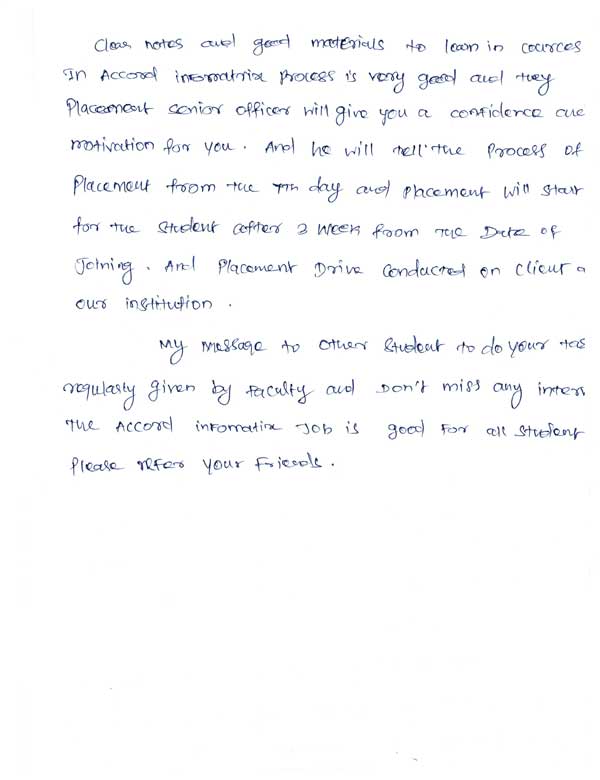 Clear notes and good materials to learn in cources
In Accord infomatrix process is very good and they
Placement senior officer will give you a confidence and
motivation for you. And he will tell the process of
Placement from the 7th day and placement will start
for the student after 3 week from the Date of
Joining. And Placement Drive conducted on client o
our institution.
My message to other student to do your tas
regularly given by faculty and Don't miss any interv
The Accord infomatix Job is good for all student
Please refer your friends.